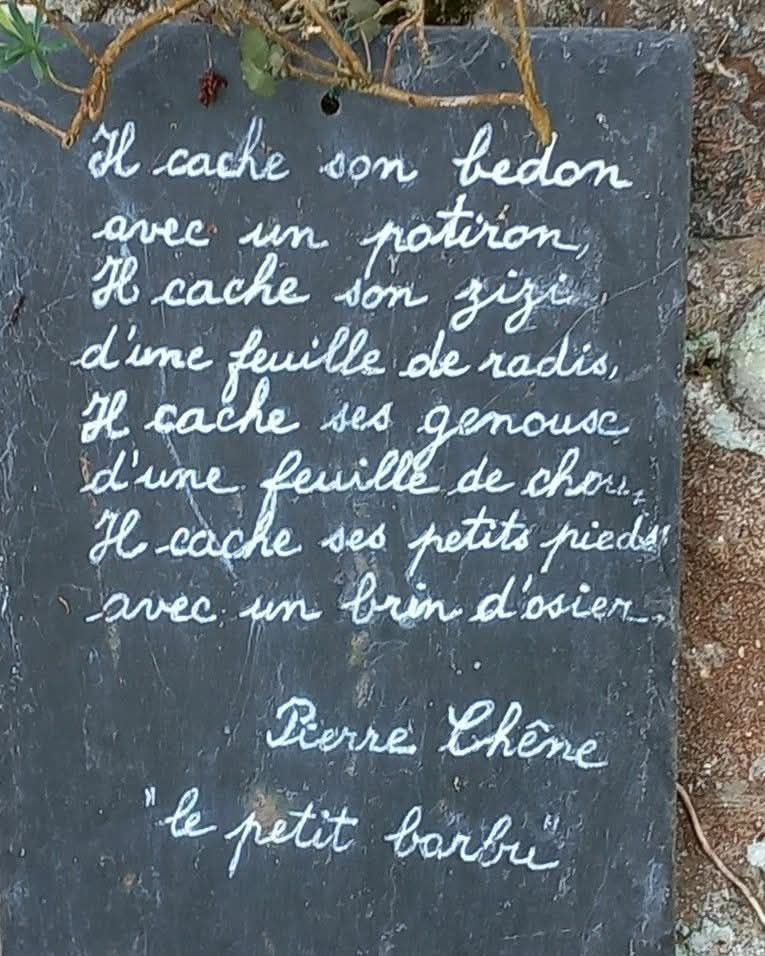 Il cache son bedon
avec un potiron,
Il cache son zizi,
d'une feuille de radis,
Il cache ses genoux
d'une feuille de chou,
Il cache ses petits pieds
avec un brin d'osier.
Pierre Chêne
"le petit barbu"